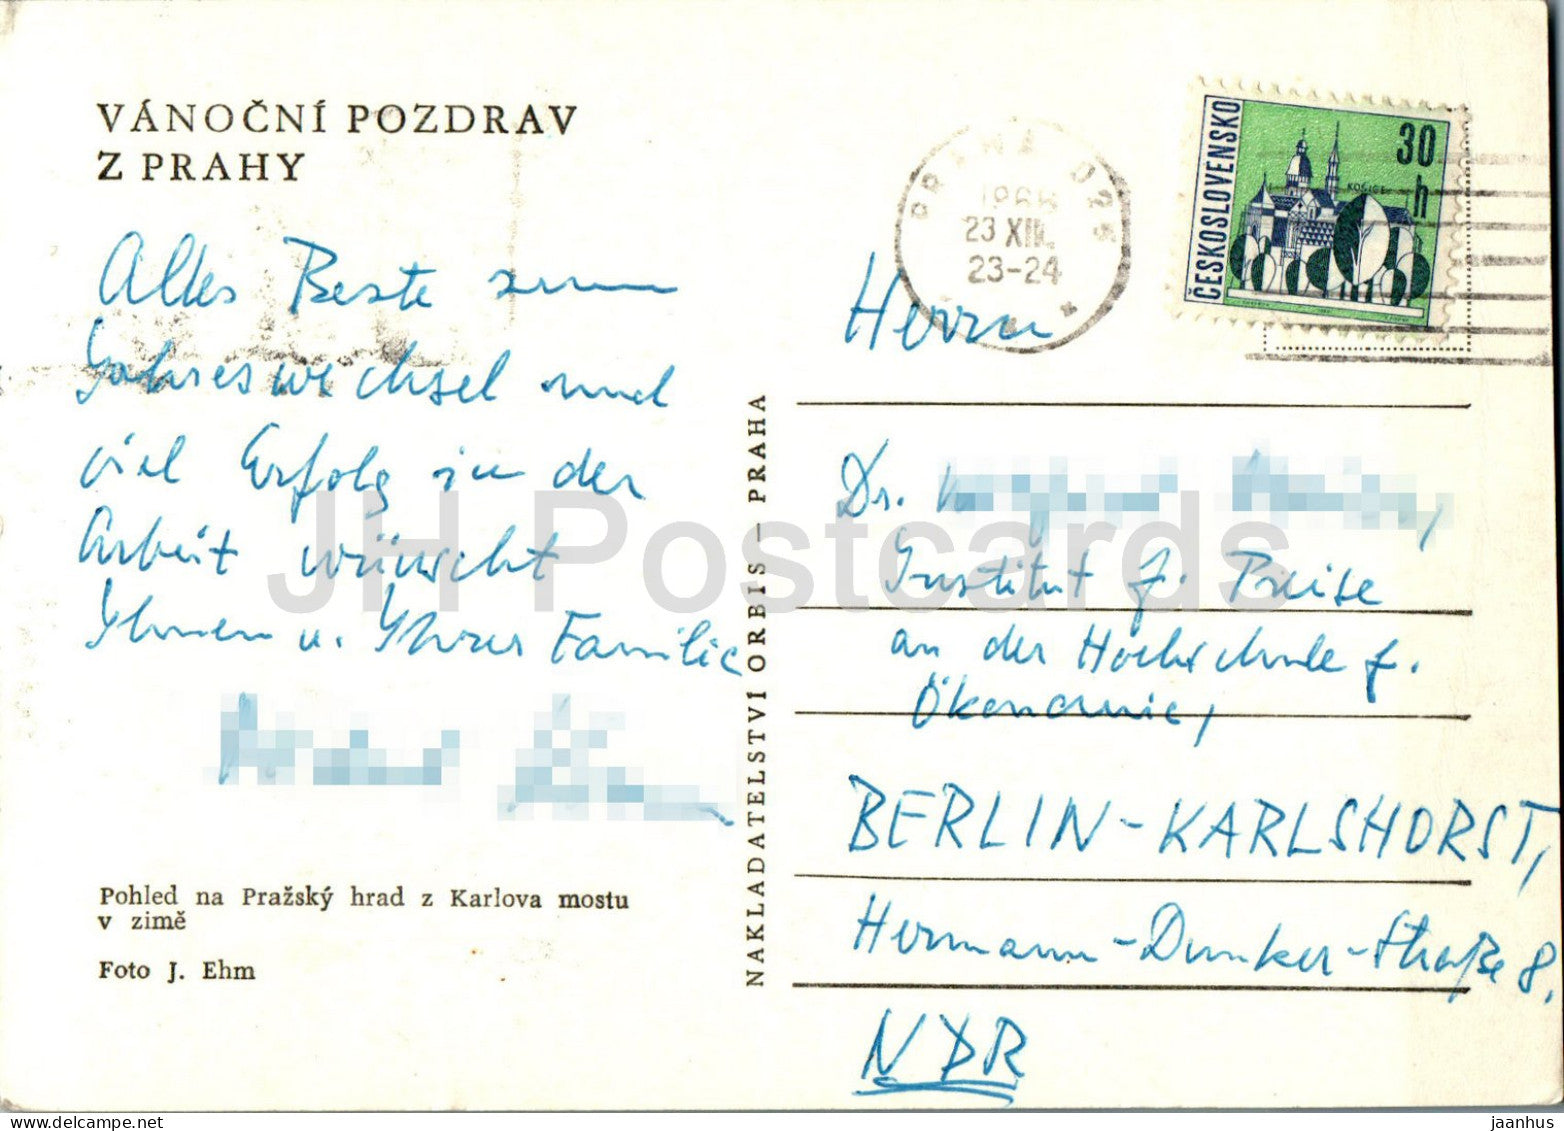 VÁNOČNÍ POZDRAV
Z PRAHY
Alles Beste zum
Jahreswechsel und
viel Erfolg in der
Arbeit wünscht
Ihnen u. Ihrer Familie
Pohled na Pražský hrad z Karlova mostu
v zimě
Foto J. Ehm
NAKLADATELSTVÍ ORBIS — PRAHA
PRAHA 025
23 XII.
23-24
ČESKOSLOVENSKO
30 h
KOŠICE
Herrn
Dr.
Institut f. Preise
an der Hochschule f.
Ökonomie,
BERLIN-KARLSHORST,
Hermann-Dunker-Straße 8,
NDR
JH Postcards
jaanhus